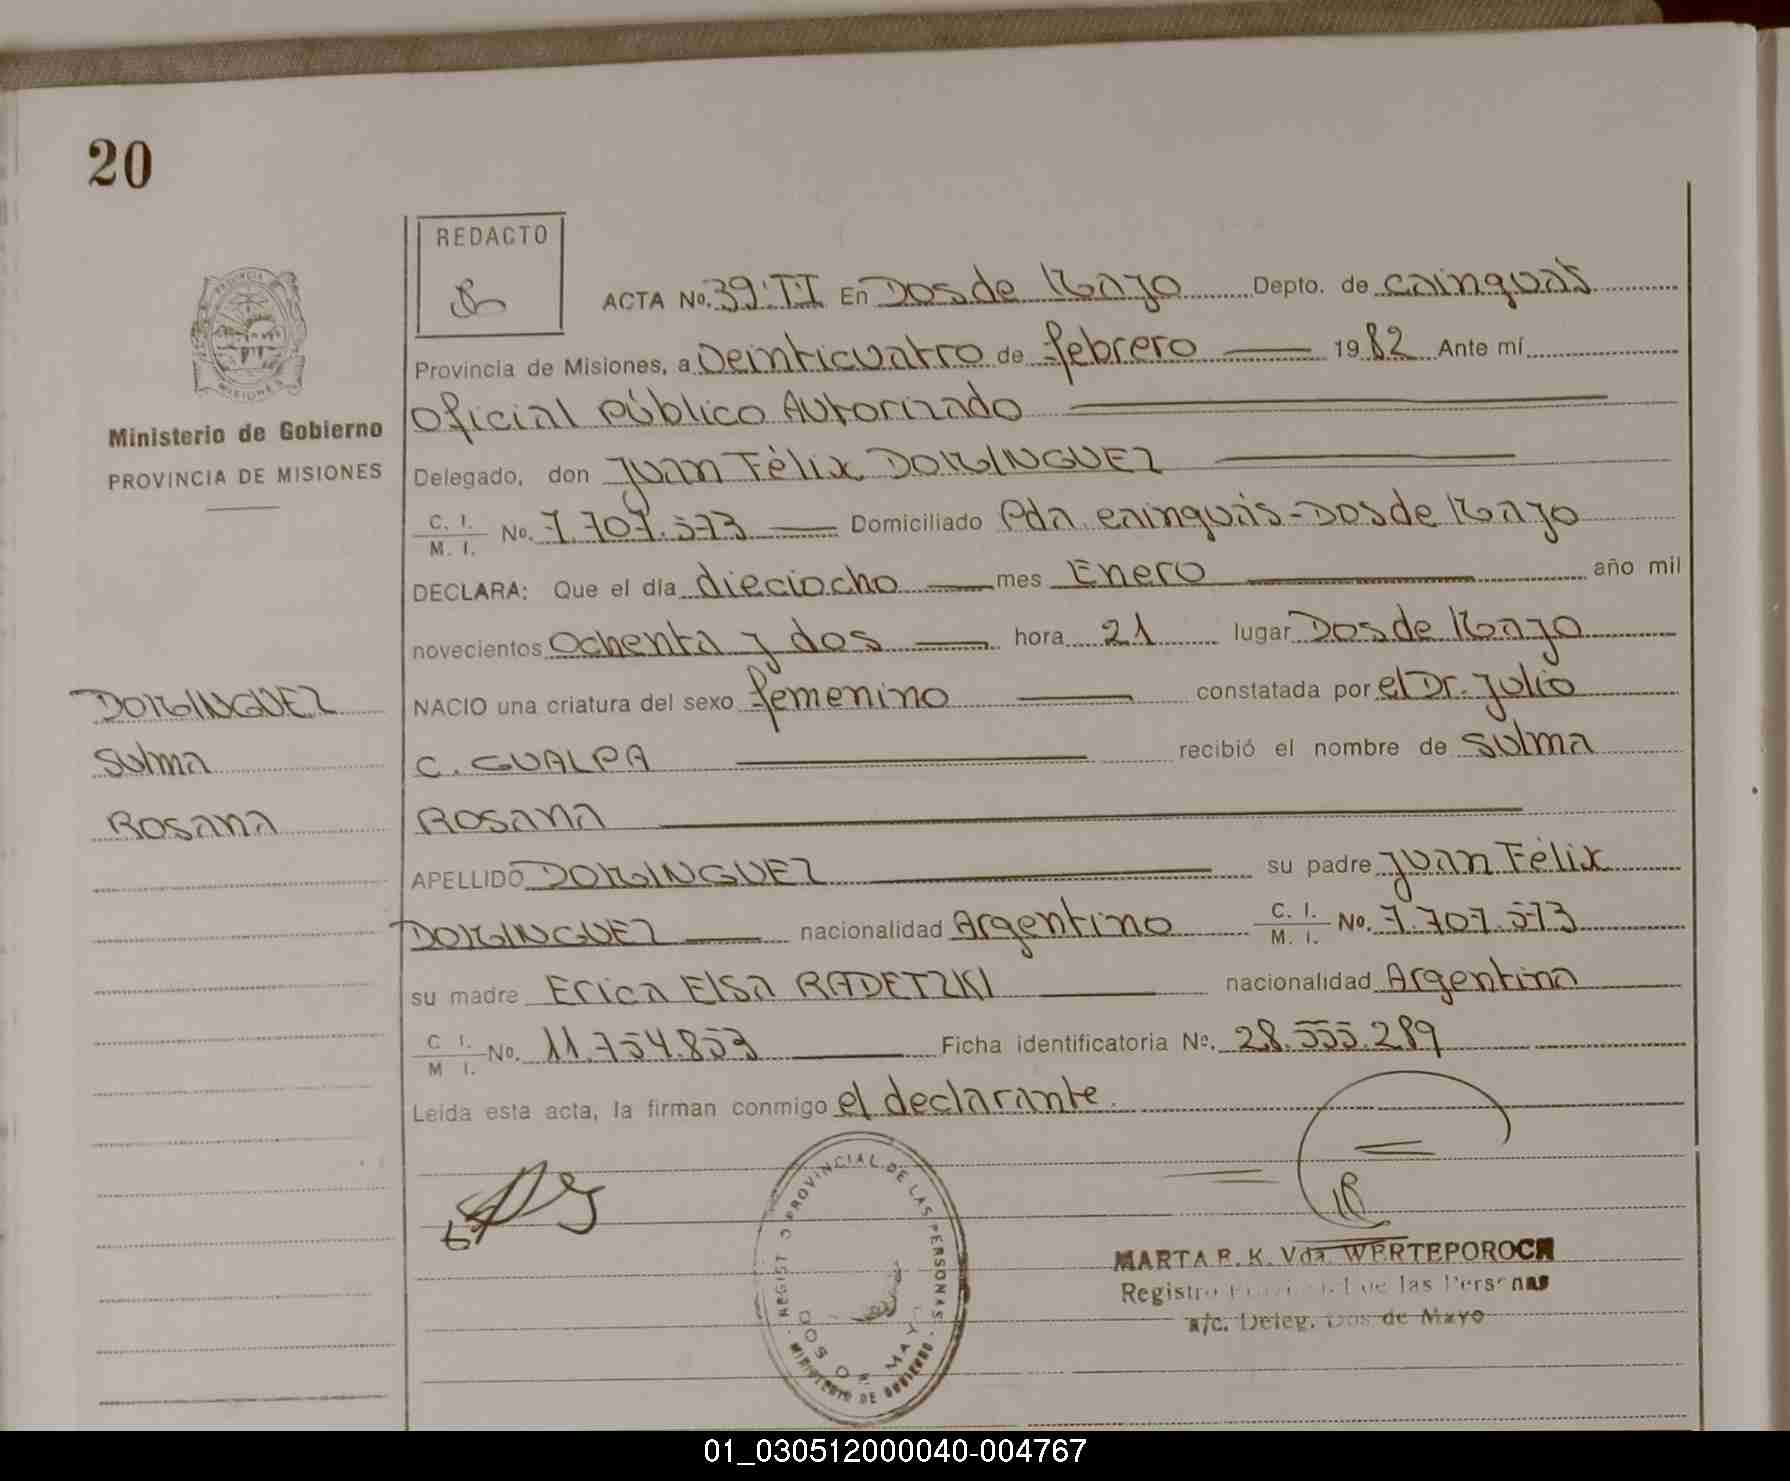 20
REDACTO
ACTA No. 39:II En Dos de Mayo Depto. de Cainguás
Provincia de Misiones, a Veinticuatro de febrero 1982 Ante mí
Oficial Público Autorizado
Ministerio de Gobierno
PROVINCIA DE MISIONES
Delegado, don Juan Félix DOMINGUEZ
C. I.
M. I. No. 7.707.573 Domiciliado Pda cainguás - Dos de Mayo
DECLARA: Que el día dieciocho mes Enero año mil
novecientos Ochenta y dos hora 21 lugar Dos de Mayo
NACIO una criatura del sexo femenino constatada por el Dr. Julio
C. GUALPA recibió el nombre de Sulma
Rosana
DOMINGUEZ
Sulma
Rosana
APELLIDO DOMINGUEZ su padre Juan Félix
DOMINGUEZ nacionalidad Argentino C. I.
M. I. No. 7.707.573
su madre Erica Elsa RADETZKI nacionalidad Argentina
C I.
M I. No. 11.754.853 Ficha identificatoria No. 28.555.289
Leida esta acta, la firman conmigo el declarante.
REGISTRO PROVINCIAL DE LAS PERSONAS
DOS DE MAYO
MINISTERIO DE GOBIERNO
MARTA R. K. Vda. WERTEPOROCH
Registro Provincial de las Personas
a/c. Deleg. Dos de Mayo
01_030512000040-004767